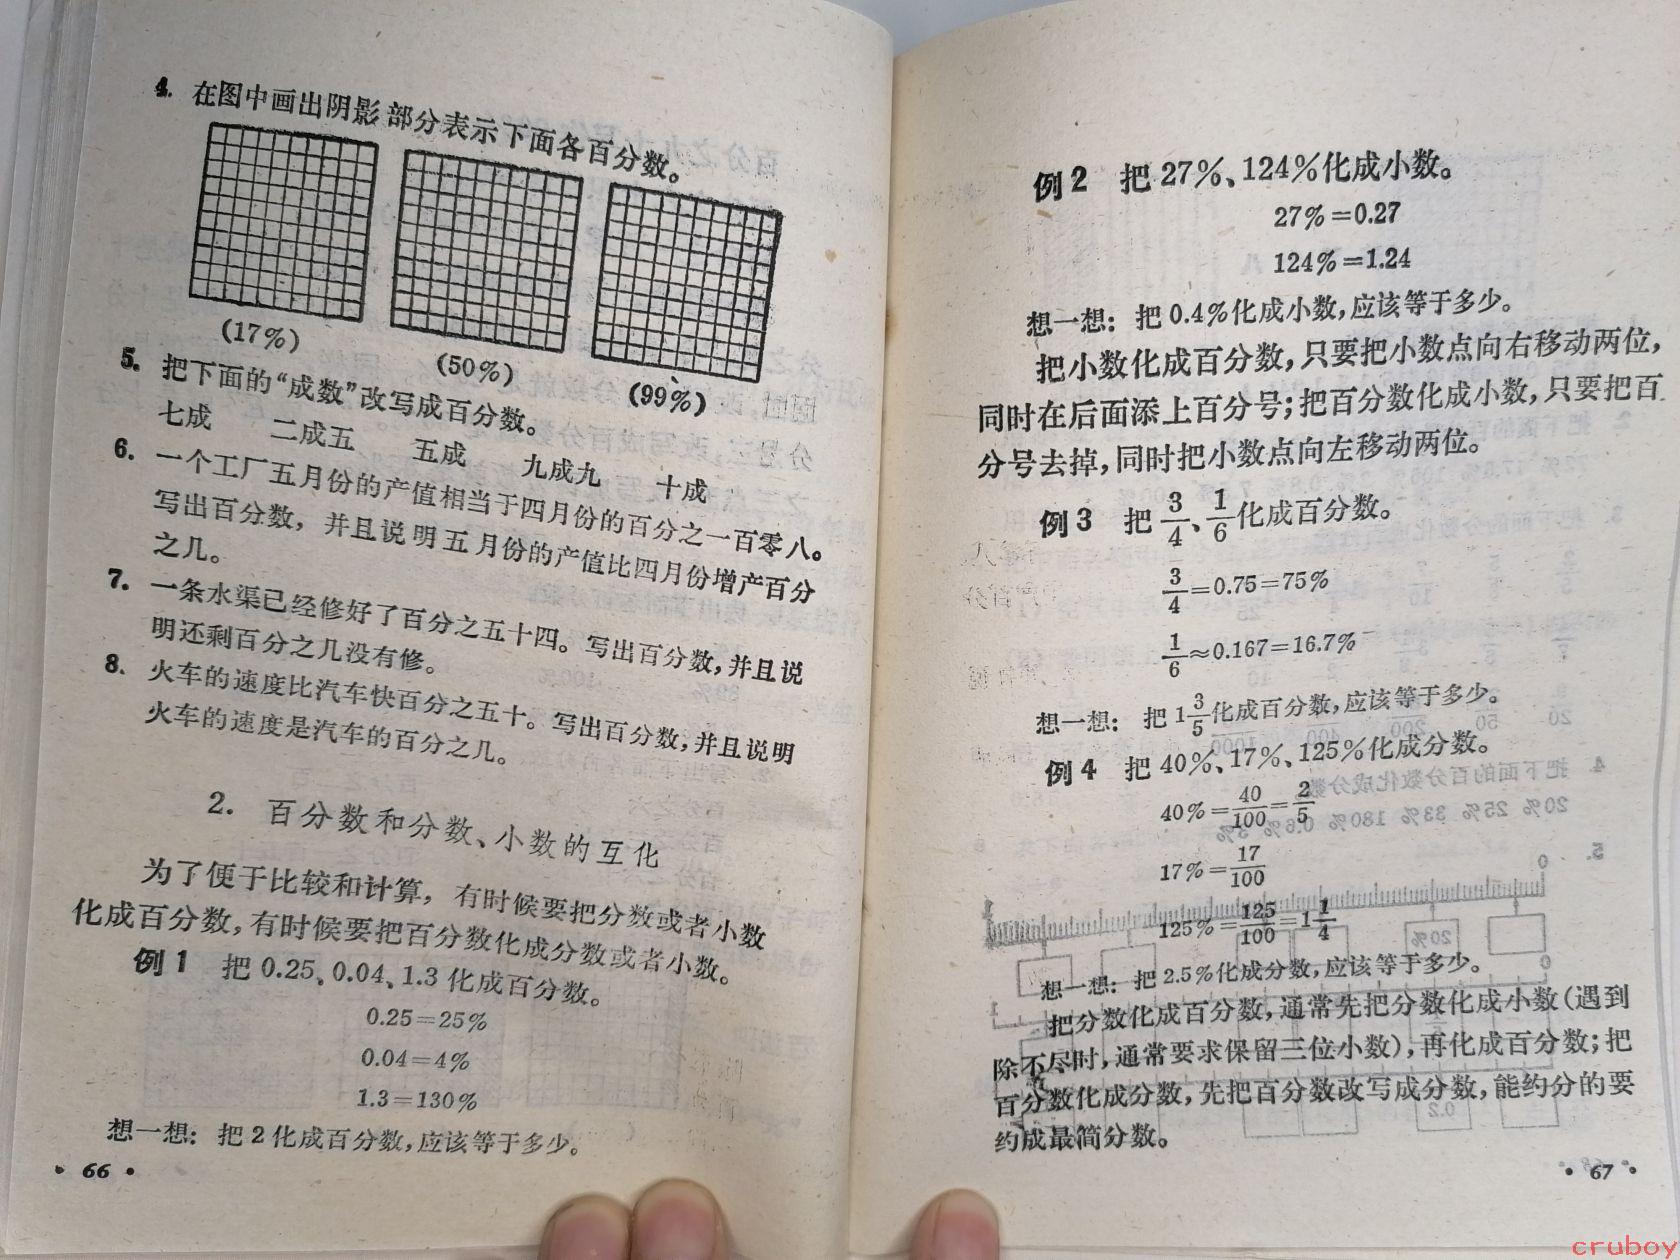 4. 在图中画出阴影部分表示下面各百分数。
(17%) (50%) (99%)
5. 把下面的“成数”改写成百分数。
七成 二成五 五成 九成九 十成
6. 一个工厂五月份的产值相当于四月份的百分之一百零八。
写出百分数，并且说明五月份的产值比四月份增产百分
之几。
7. 一条水渠已经修好了百分之五十四。写出百分数，并且说
明还剩百分之几没有修。
8. 火车的速度比汽车快百分之五十。写出百分数，并且说明
火车的速度是汽车的百分之几。
2. 百分数和分数、小数的互化
为了便于比较和计算，有时候要把分数或者小数
化成百分数，有时候要把百分数化成分数或者小数。
例1 把 0.25、0.04、1.3 化成百分数。
0.25=25%
0.04=4%
1.3=130%
想一想：把2化成百分数，应该等于多少。
• 66 •
例2 把 27%、124%化成小数。
27%=0.27
124%=1.24
想一想：把0.4%化成小数，应该等于多少。
把小数化成百分数，只要把小数点向右移动两位，
同时在后面添上百分号；把百分数化成小数，只要把百
分号去掉，同时把小数点向左移动两位。
例3 把 3/4、1/6 化成百分数。
3/4=0.75=75%
1/6≈0.167=16.7%
想一想：把 1 3/5 化成百分数，应该等于多少。
例4 把 40%、17%、125%化成分数。
40%=40/100=2/5
17%=17/100
125%=125/100=1 1/4
想一想：把2.5%化成分数，应该等于多少。
把分数化成百分数，通常先把分数化成小数（遇到
除不尽时，通常要求保留三位小数），再化成百分数；把
百分数化成分数，先把百分数改写成分数，能约分的要
约成最简分数。
• 67 •
cruboy